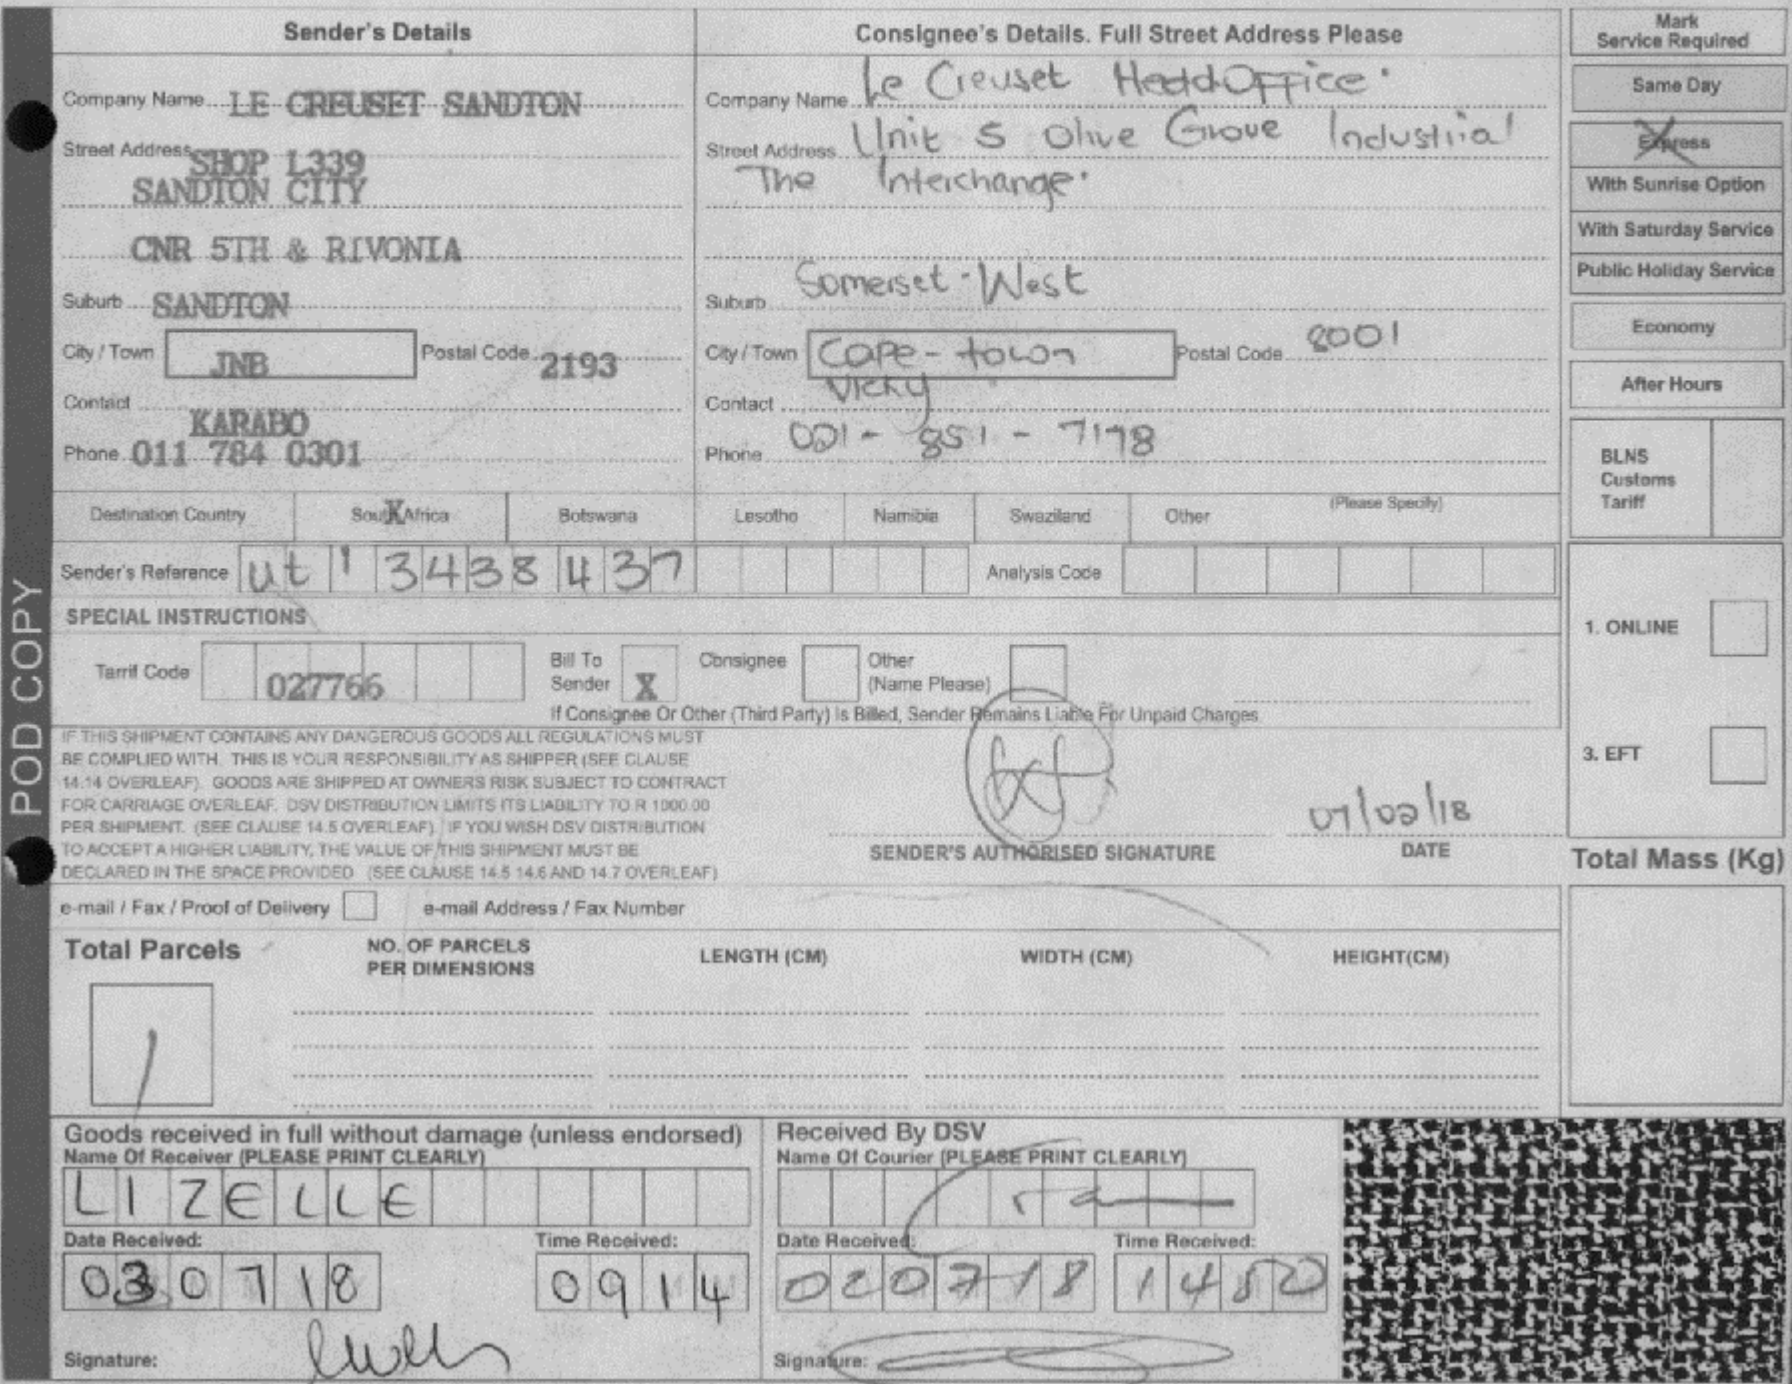 Sender's Details
Company Name LE CREUSET SANDTON
Street Address SHOP L339
SANDTON CITY
CNR 5TH & RIVONIA
Suburb SANDTON
City / Town JNB Postal Code 2193
Contact KARABO
Phone 011 784 0301
Consignee's Details. Full Street Address Please
Company Name Le Creuset Head Office
Street Address Unit 5 Olive Grove Industrial
The Interchange.
Suburb Somerset-West
City / Town Cape-town Postal Code 8001
Contact Vicky
Phone 021-851-7178
Mark
Service Required
Same Day
Express
With Sunrise Option
With Saturday Service
Public Holiday Service
Economy
After Hours
BLNS
Customs
Tariff
Destination Country South Africa X Botswana Lesotho Namibia Swaziland Other (Please Specify)
Sender's Reference ut 1 3438437 Analysis Code
SPECIAL INSTRUCTIONS
Tarrif Code 027766 Bill To Sender X Consignee Other (Name Please)
If Consignee Or Other (Third Party) Is Billed, Sender Remains Liable For Unpaid Charges
1. ONLINE
3. EFT
IF THIS SHIPMENT CONTAINS ANY DANGEROUS GOODS ALL REGULATIONS MUST
BE COMPLIED WITH. THIS IS YOUR RESPONSIBILITY AS SHIPPER (SEE CLAUSE
14.14 OVERLEAF). GOODS ARE SHIPPED AT OWNERS RISK SUBJECT TO CONTRACT
FOR CARRIAGE OVERLEAF. DSV DISTRIBUTION LIMITS ITS LIABILITY TO R 1000.00
PER SHIPMENT. (SEE CLAUSE 14.5 OVERLEAF). IF YOU WISH DSV DISTRIBUTION
TO ACCEPT A HIGHER LIABILITY, THE VALUE OF THIS SHIPMENT MUST BE
DECLARED IN THE SPACE PROVIDED (SEE CLAUSE 14.5 14.6 AND 14.7 OVERLEAF)
SENDER'S AUTHORISED SIGNATURE
DATE
Total Mass (Kg)
e-mail / Fax / Proof of Delivery e-mail Address / Fax Number
Total Parcels NO. OF PARCELS PER DIMENSIONS LENGTH (CM) WIDTH (CM) HEIGHT(CM)
1
Goods received in full without damage (unless endorsed)
Name Of Receiver (PLEASE PRINT CLEARLY)
LIZELLE
Date Received: Time Received:
030718 0914
Signature:
Received By DSV
Name Of Courier (PLEASE PRINT CLEARLY)
Date Received: Time Received:
020718 1450
Signature:
POD COPY